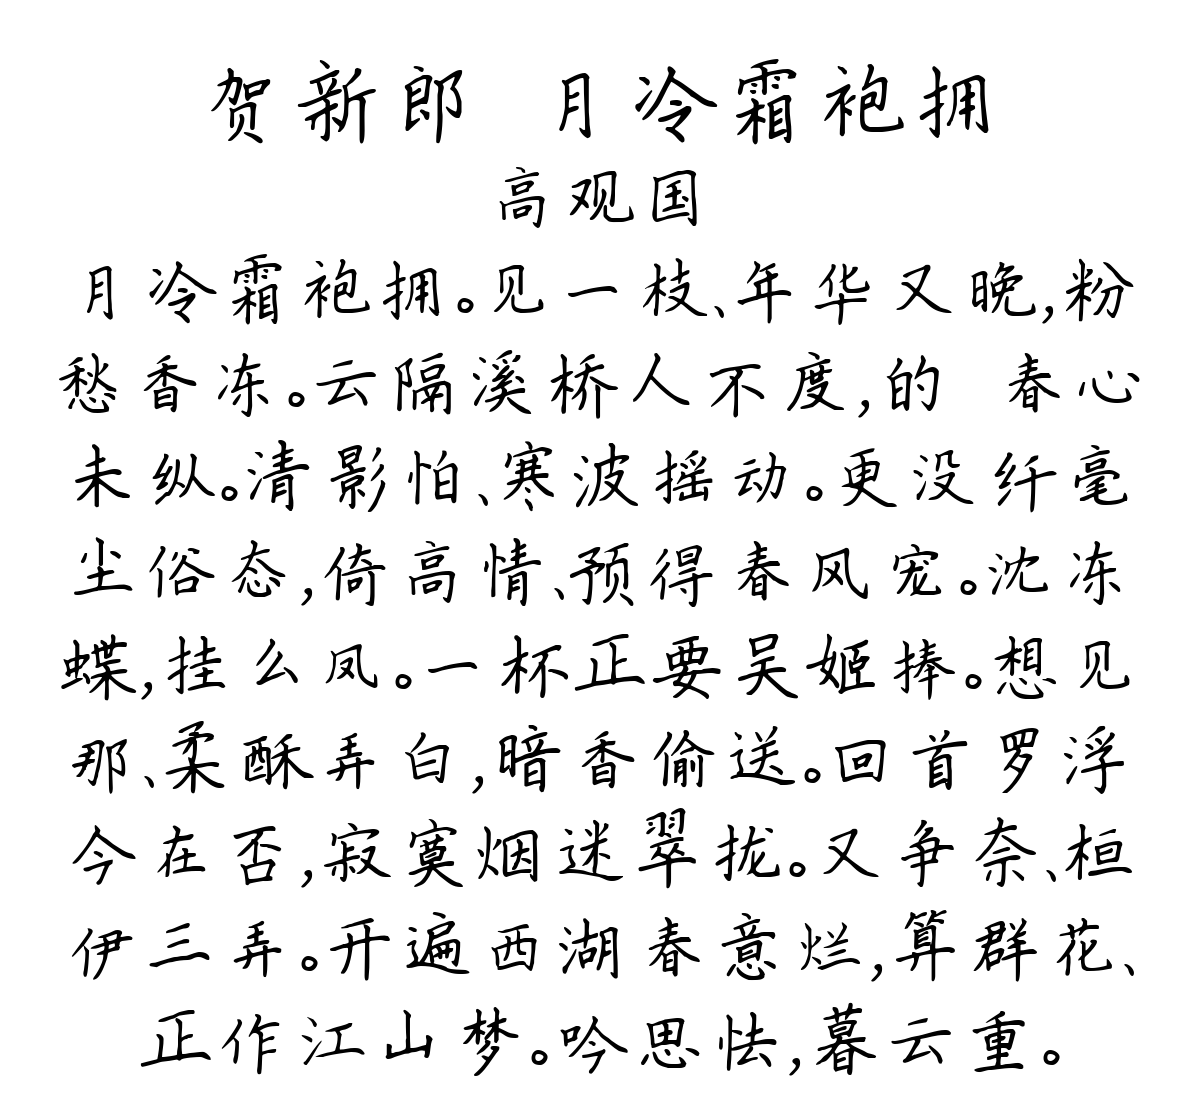 贺新郎 月冷霜袍拥
高观国
月冷霜袍拥。见一枝、年华又晚,粉
愁香冻。云隔溪桥人不度,的 春心
未纵。清影怕、寒波摇动。更没纤毫
尘俗态,倚高情、预得春风宠。沈冻
蝶,挂么凤。一杯正要吴姬捧。想见
那、柔酥弄白,暗香偷送。回首罗浮
今在否,寂寞烟迷翠拢。又争奈、桓
伊三弄。开遍西湖春意烂,算群花、
正作江山梦。吟思怯,暮云重。